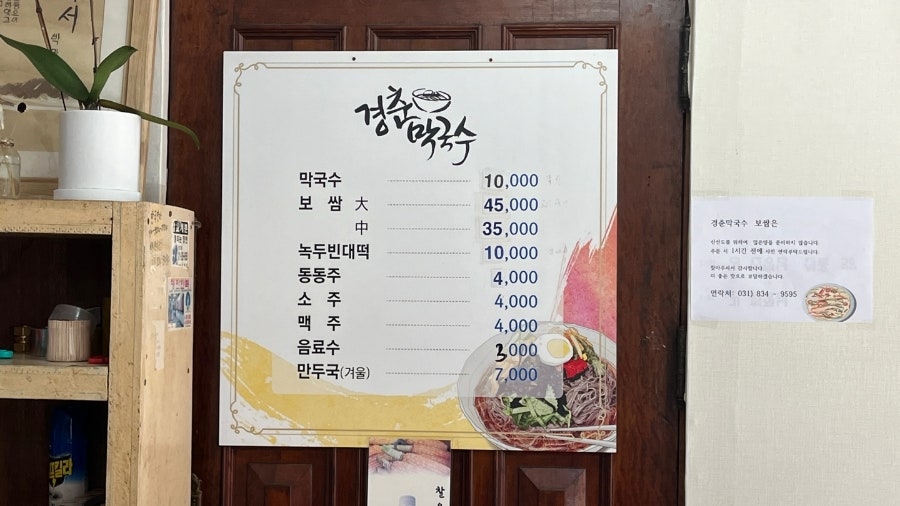 경춘
막국수
막국수 10,000
보 쌈 大 45,000
中 35,000
녹두빈대떡 10,000
동동주 4,000
소 주 4,000
맥 주 4,000
음료수 3000
만두국(겨울) 7,000
경춘막국수 보쌈은
신선도를 위하여 많은양을 준비하지 않습니다.
주문 시 1시간 전에 사전 연락부탁드립니다.
찾아주셔서 감사합니다.
더 좋은 맛으로 보답하겠습니다.
연락처: 031) 834 - 9595
찰
킬라
서